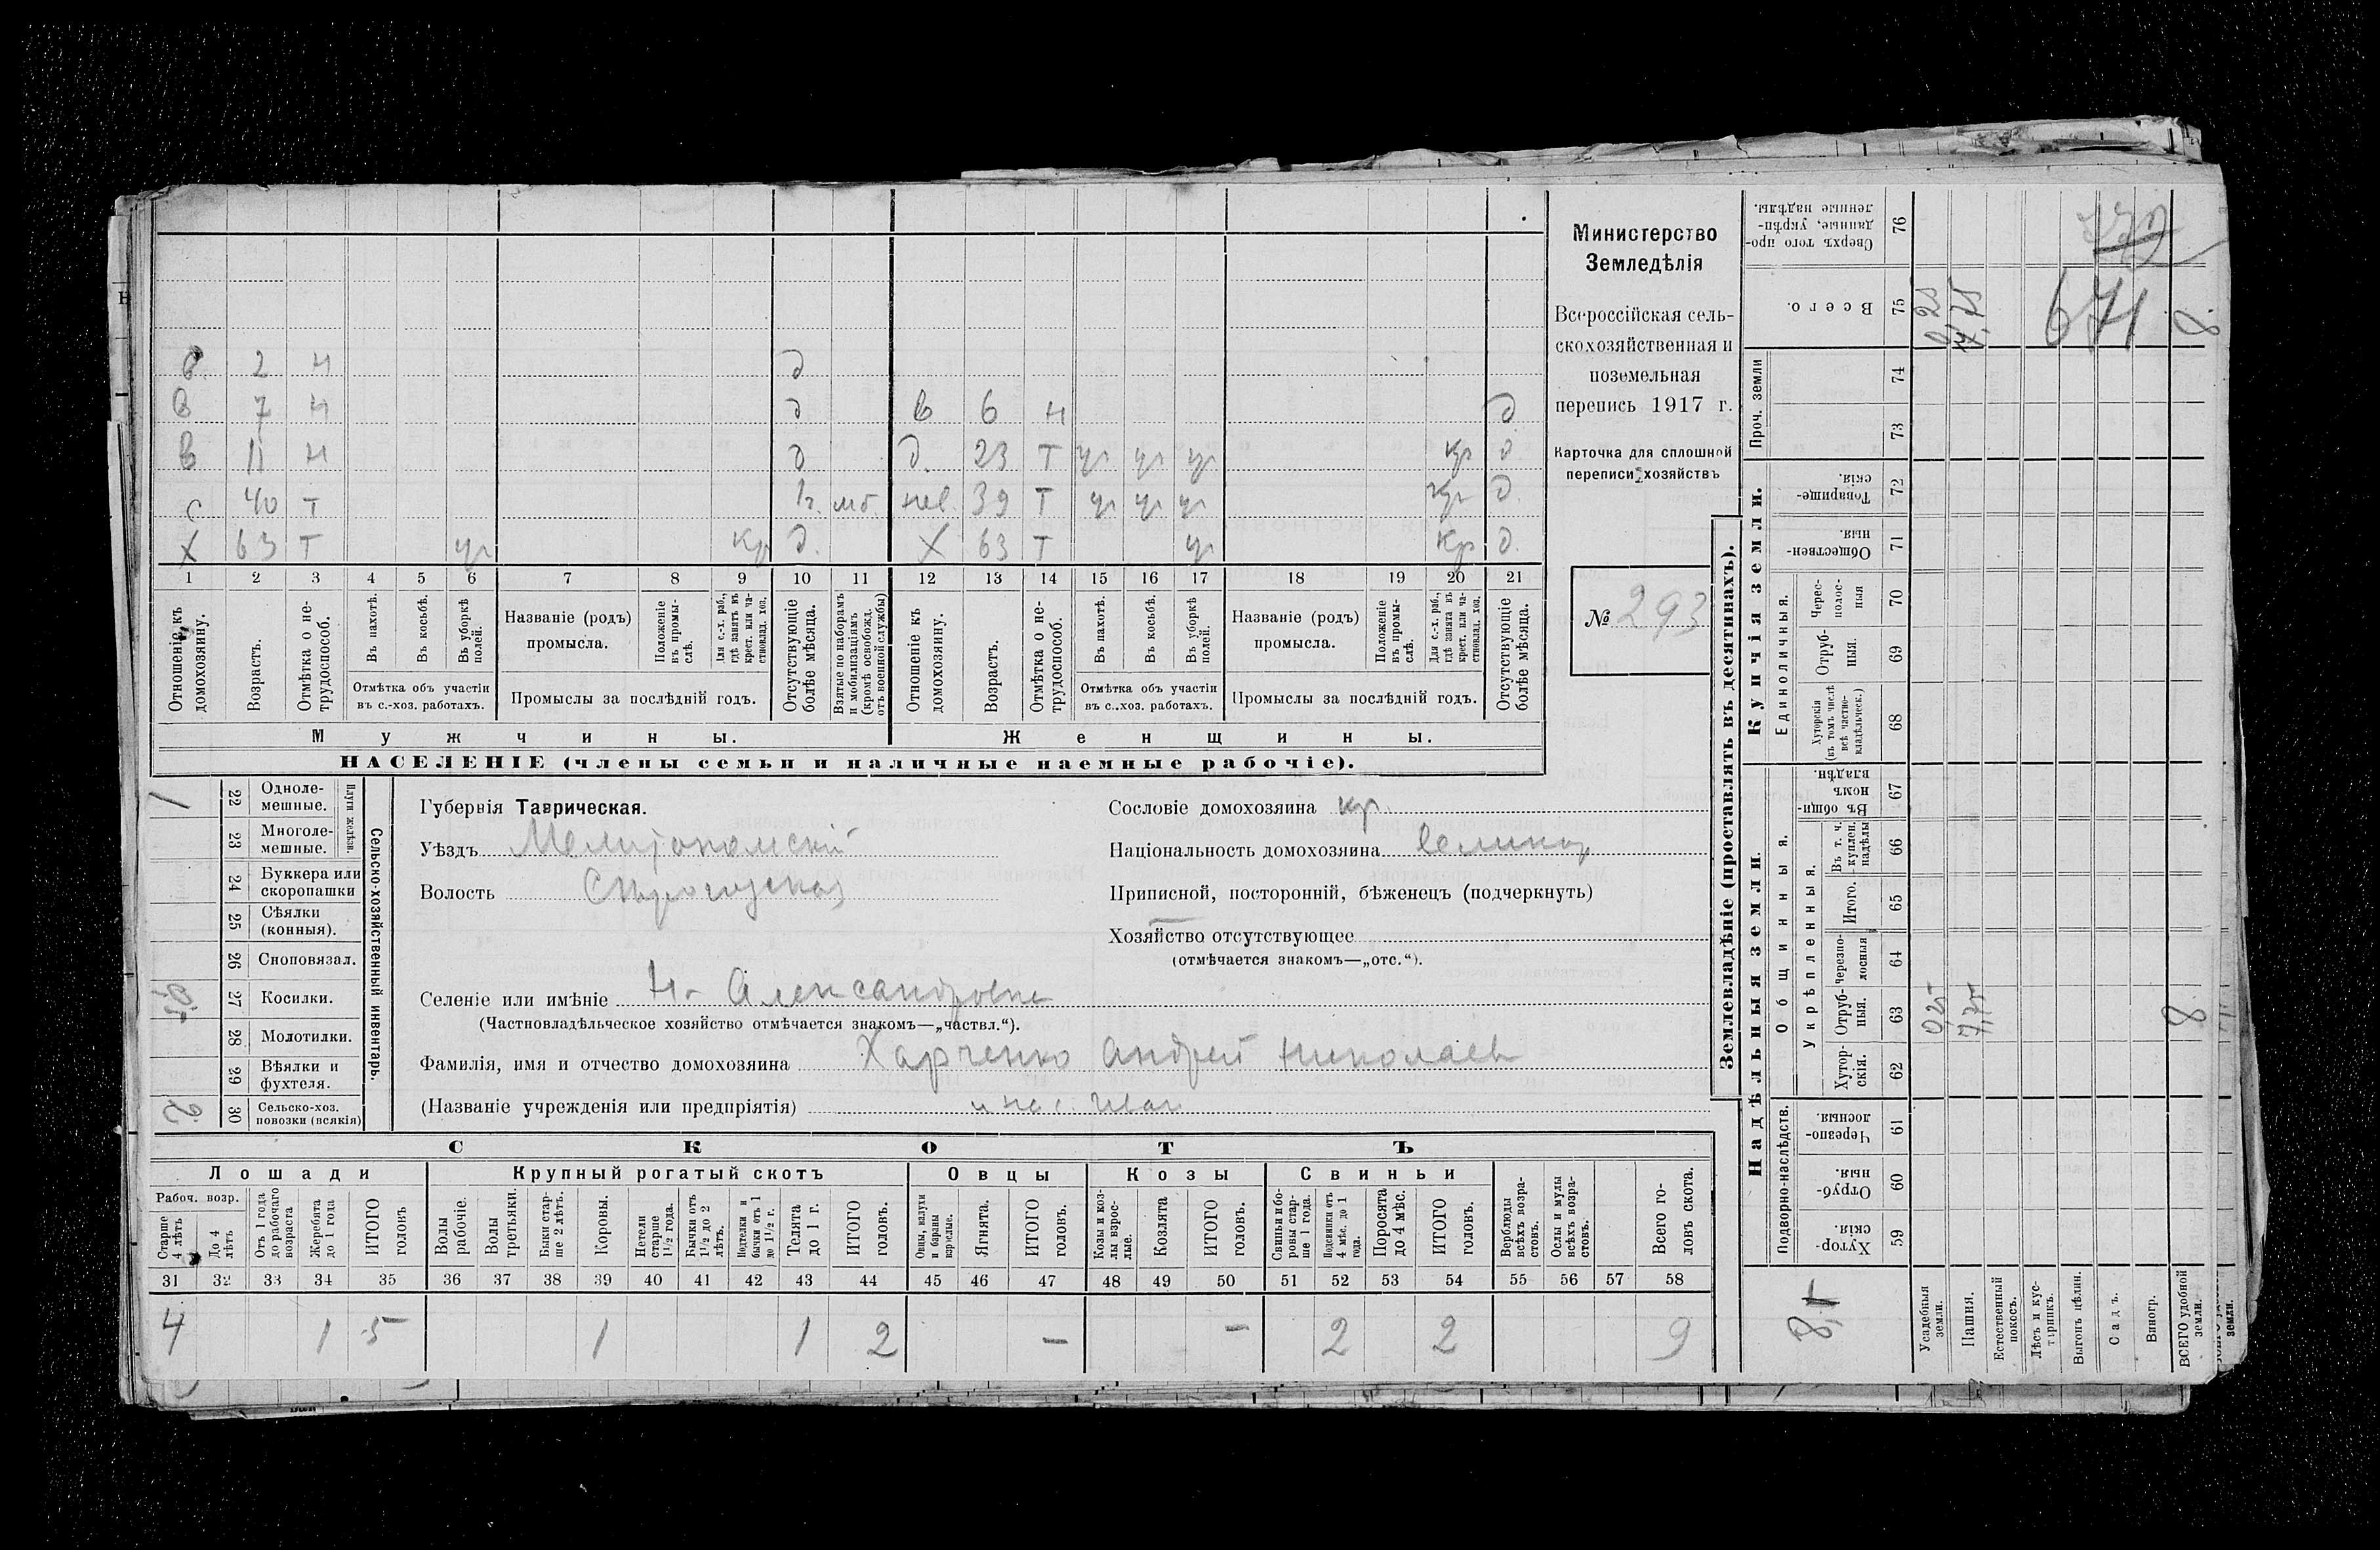 в. 2 н д
в 7 н д в 6 н д
в 11 н д д. 23 т уч уч уч кр д
с 40 т в. мб. нев. 39 т уч уч уч кр д.
х 63 т уч кр д. х 63 т уч кр д.
1 2 3 4 5 6 7 8 9 10 11 12 13 14 15 16 17 18 19 20 21
Отношеніе къ домохозяину.
Возрастъ.
Отмѣтка о не-трудоспособ.
Въ пахотѣ.
Въ косьбѣ.
Въ уборкѣ полей.
Отмѣтка объ участіи
въ с.-хоз. работахъ.
Названіе (родъ)
промысла.
Положеніе въ промы-слѣ.
Для с.-х. раб., гдѣ занятъ въ крест. или ча-стновлад. хоз.
Промыслы за послѣдній годъ.
Отсутствующіе болѣе мѣсяца.
Взятые по наборамъ и мобилизаціямъ (кромѣ освобожд. отъ военной службы)
Отношеніе къ домохозяину.
Возрастъ.
Отмѣтка о не-трудоспособ.
Въ пахотѣ.
Въ косьбѣ.
Въ уборкѣ полей.
Отмѣтка объ участіи
въ с.-хоз. работахъ.
Названіе (родъ)
промысла.
Положеніе въ промы-слѣ.
Для с.-х. раб., гдѣ занята въ крест. или ча-стновлад. хоз.
Промыслы за послѣдній годъ.
Отсутствующіе болѣе мѣсяца.
Мужчины. Женщины.
НАСЕЛЕНІЕ (члены семьи и наличные наемные рабочіе).
Министерство
Земледѣлія
Всероссійская сель-
скохозяйственная и
поземельная
перепись 1917 г.
Карточка для сплошной
переписи хозяйствъ
№ 293
Сельско-хозяйственный инвентарь.
Плуги желѣзн.
1 22 Одноле-мешные.
23 Многоле-мешные.
24 Буккера или скоропашки
25 Сѣялки (конныя).
26 Сноповязал.
0,5 27 Косилки.
28 Молотилки.
29 Вѣялки и фухтеля.
2 30 Сельско-хоз. повозки (всякія)
Губернія Таврическая.
Уѣздъ Мелитопольскій
Волость
Селеніе или имѣніе Н. Александровка
(Частновладѣльческое хозяйство отмѣчается знакомъ—„частвл.“).
Фамилія, имя и отчество домохозяина Харченко Андрей Николаев
(Названіе учрежденія или предпріятія)
Сословіе домохозяина кр.
Національность домохозяина великор
Приписной, посторонній, бѣженецъ (подчеркнуть)
Хозяйство отсутствующее
(отмѣчается знакомъ—„отс.“).
СКОТЪ
Лошади Крупный рогатый скотъ Овцы Козы Свиньи
Рабоч. возр.
Старше 4 лѣтъ
До 4 лѣтъ
Отъ 1 года до рабочаго возраста
Жеребята до 1 года
ИТОГО головъ
Волы рабочіе.
Волы третьяки.
Быки стар-ше 2 лѣтъ.
Коровы.
Нетели старше 1½ года.
Бычки отъ 1½ до 2 лѣтъ.
Подтелки и бычки отъ 1 до 1½ г.
Телята до 1 г.
ИТОГО головъ.
Овцы, валухи и бараны взрослые.
Ягнята.
ИТОГО головъ.
Козы и коз-лы взрос-лые.
Козлята
ИТОГО головъ.
Свиньи и бо-ровы стар-ше 1 года.
Подсвинки отъ 4 мѣс. до 1 года.
Поросята до 4 мѣс.
ИТОГО головъ.
Верблюды всѣхъ возра-стовъ.
Ослы и мулы всѣхъ возра-стовъ.
Всего го-ловъ скота.
31 32 33 34 35 36 37 38 39 40 41 42 43 44 45 46 47 48 49 50 51 52 53 54 55 56 57 58
4 1 5 1 1 2 — — 2 2 9
Землевладѣніе (проставлять въ десятинахъ).
Купчія земли.
Надѣльныя земли.
Проч. земли
Единоличныя.
Общинныя.
Укрѣпленныя.
Подворно-наслѣдств.
Сверхъ того про-данные, укрѣп-ленные надѣлы. 76
Всего. 75 0,25 7,75 8
74
73
Товарище-скія. 72
Обществен-ныя. 71
Черес-полос-ныя 70
Отруб-ныя. 69
Хуторскія (въ томъ числѣ всѣ частно-владѣльческ.) 68
Въ общин-номъ владѣн. 67
Въ т. ч. куплен. надѣлы 66
Итого. 65
Черезпо-лосныя 64
Отруб-ныя. 63 0,25 7,75 8
Хутор-скія. 62
Черезпо-лосныя 61
Отруб-ныя. 60
Хутор-скія. 59
671
Усадебныя земли.
Пашня.
Естественный покосъ.
Лѣсъ и кус-тарникъ.
Выгонъ цѣлин.
Садъ.
Виногр.
ВСЕГО удобной земли.